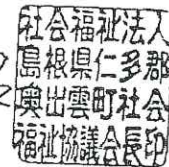 社会福祉法人
島根県仁多郡
奥出雲町社会
福祉協議会長印